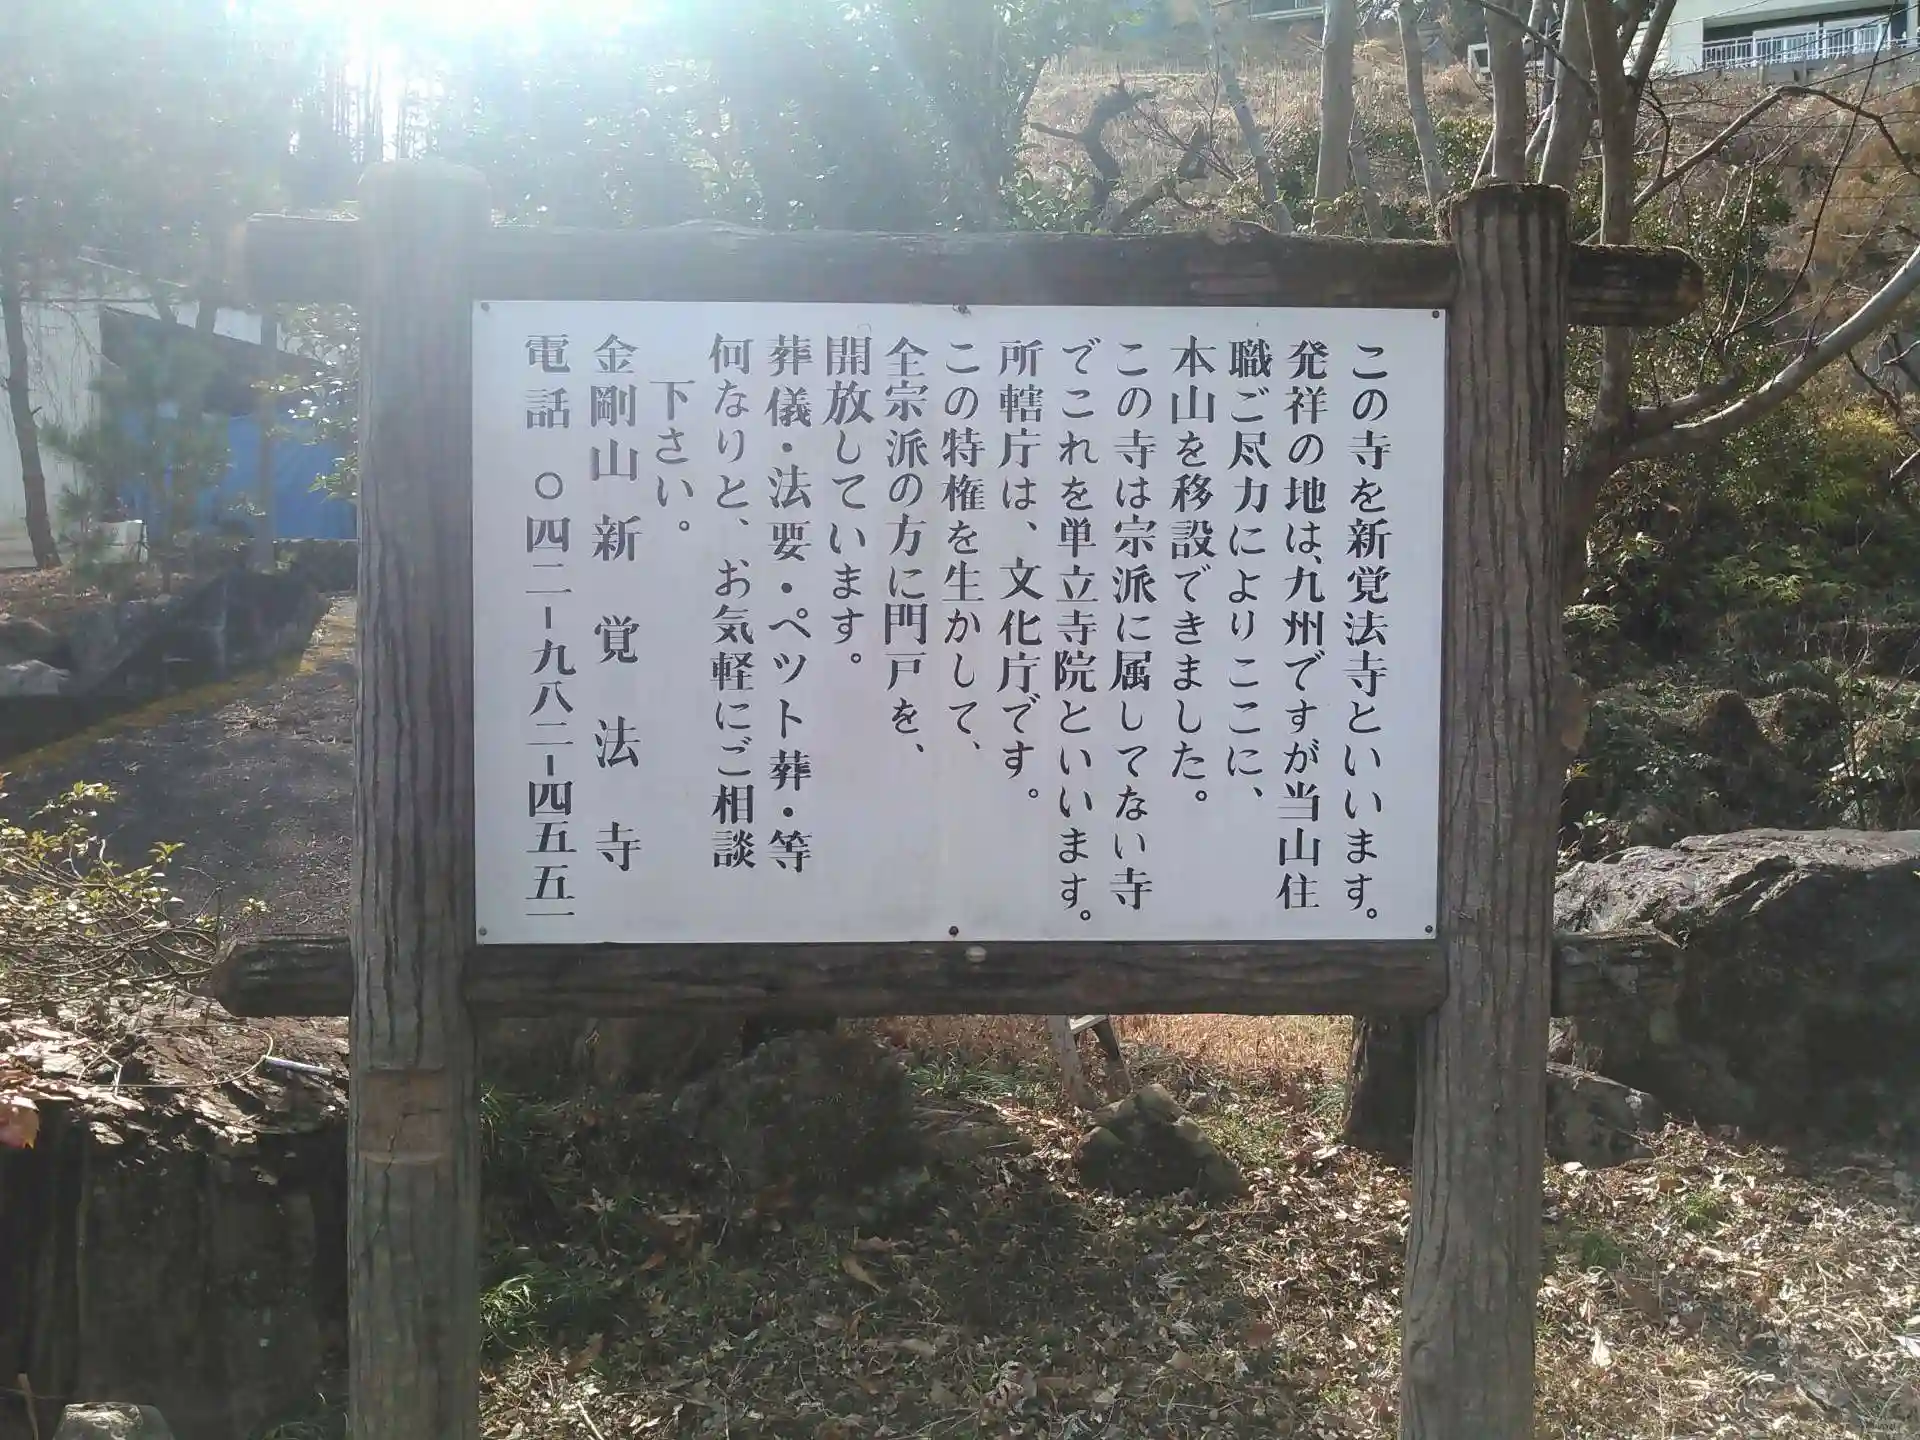 この寺を新覚法寺といいます。
発祥の地は、九州ですが当山住
職ご尽力によりここに、
本山を移設できました。
この寺は宗派に属してない寺
でこれを単立寺院といいます。
所轄庁は、文化庁です。
この特権を生かして、
全宗派の方に門戸を、
開放しています。
葬儀・法要・ペット葬・等
何なりと、お気軽にご相談
下さい。
金剛山 新 覚 法 寺
電話 〇四二ー九八二ー四五五一